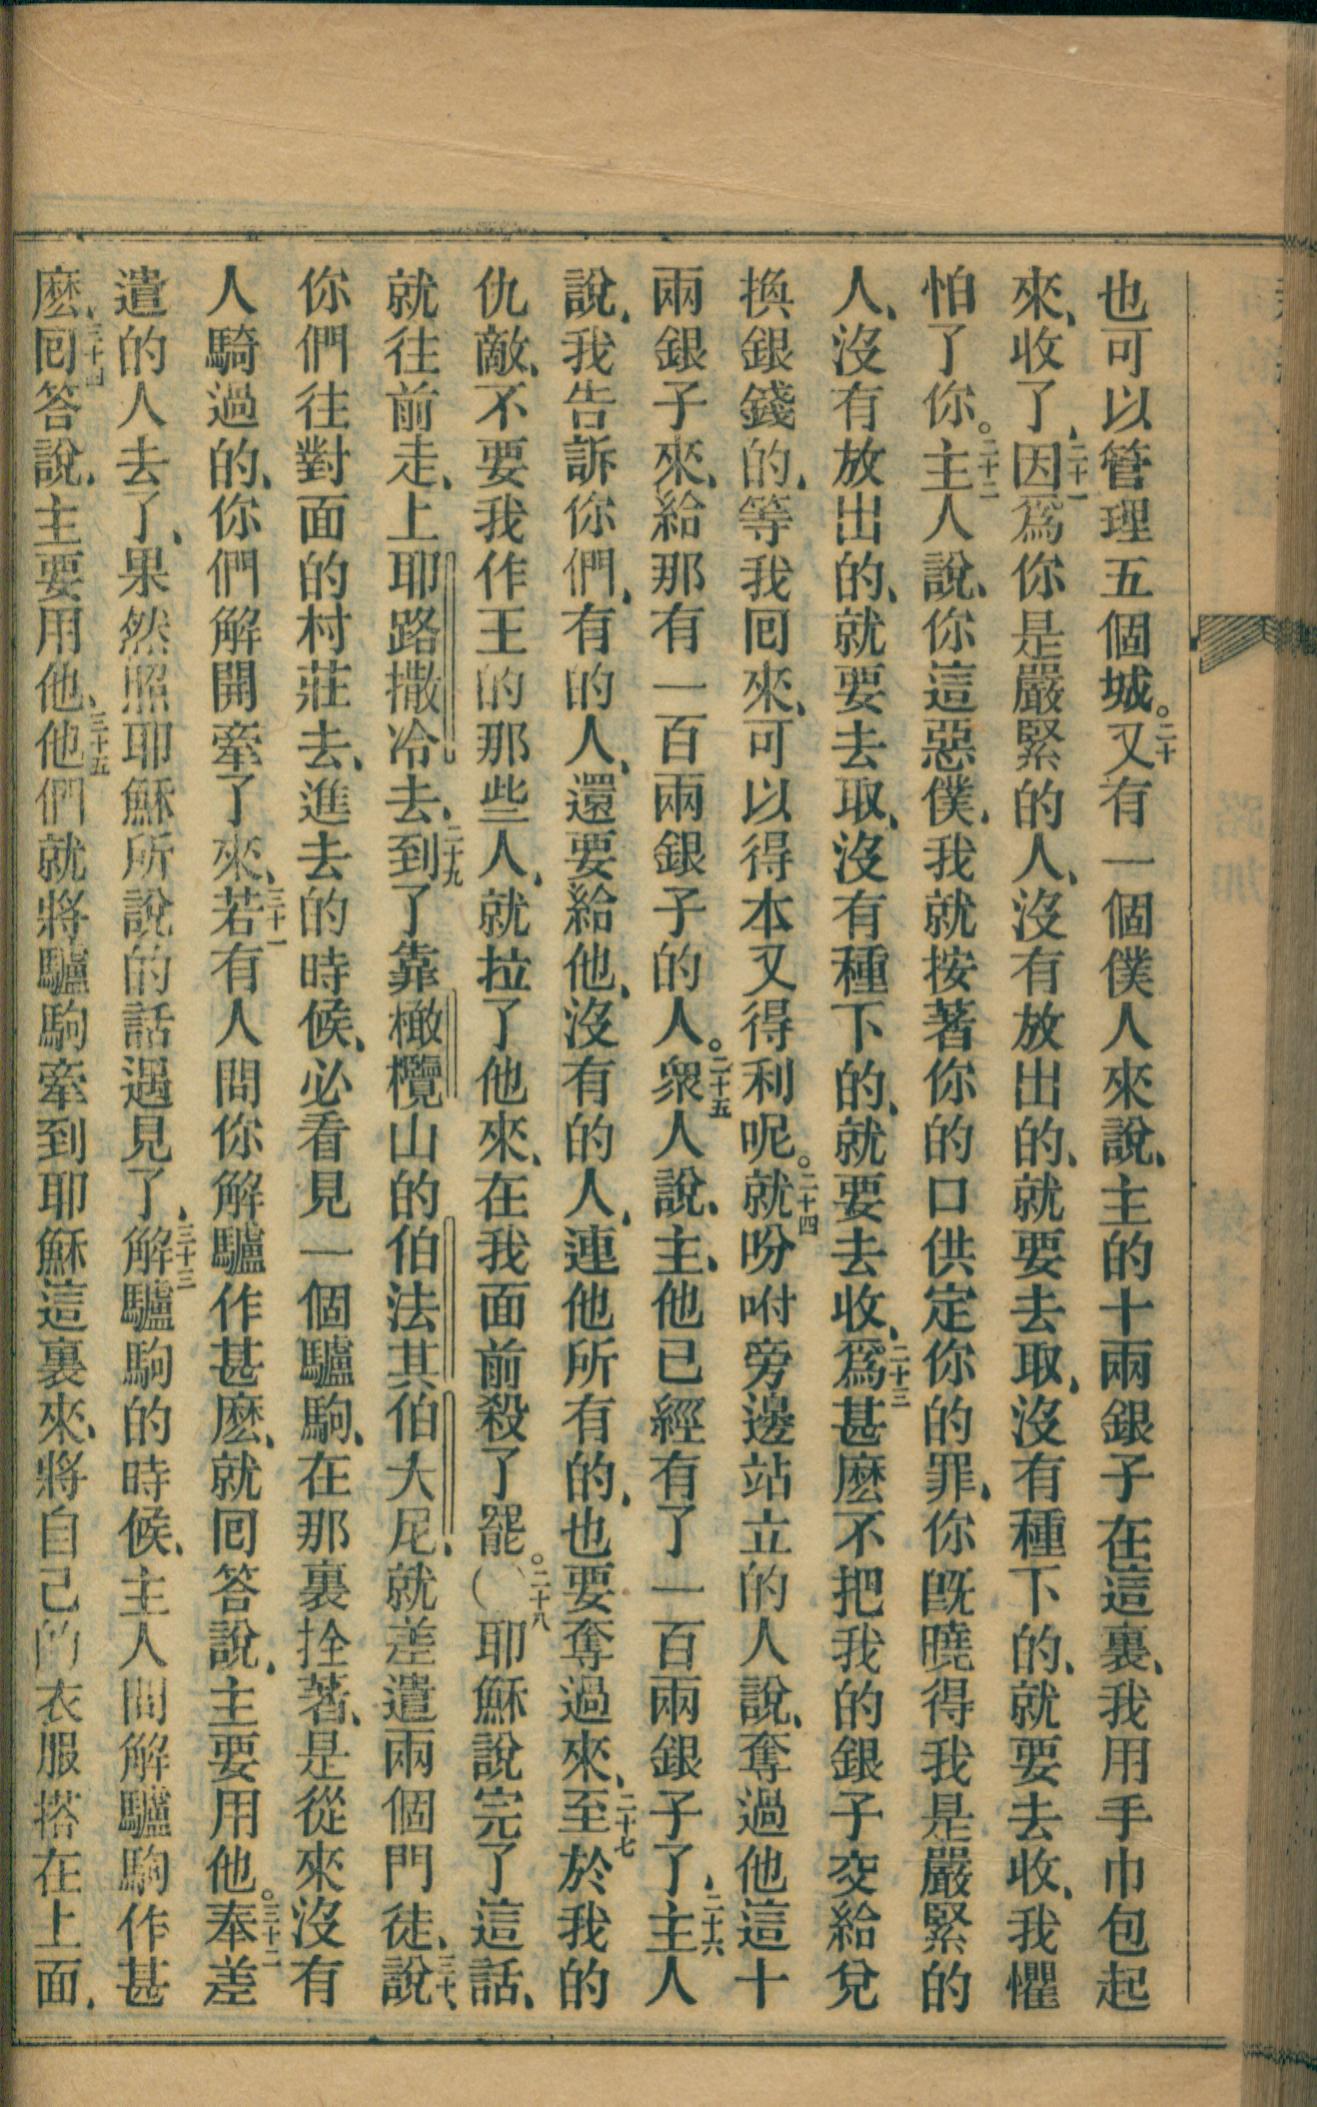 也可以管理五個城。二十又有一個僕人來說、主的十兩銀子在這裏、我用手巾包起
來、收了、二十一因爲你是嚴緊的人、沒有放出的、就要去取、沒有種下的、就要去收、我懼
怕了你。二十二主人說、你這惡僕、我就按著你的口供定你的罪、你旣曉得我是嚴緊的
人、沒有放出的、就要去取、沒有種下的、就要去收、二十三爲甚麽不把我的銀子交給兌
換銀錢的、等我囘來、可以得本又得利呢。二十四就吩咐旁邊站立的人說、奪過他這十
兩銀子來、給那有一百兩銀子的人。二十五衆人說、主、他已經有了一百兩銀子了、二十六主人
說、我告訴你們、有的人、還要給他、沒有的人、連他所有的、也要奪過來、二十七至於我的
仇敵、不要我作王的那些人、就拉了他來、在我面前殺了罷。二十八〇耶穌說完了這話、
就往前走、上耶路撒冷去、二十九到了靠橄欖山的伯法其伯大尼、就差遣兩個門徒、三十說、
你們往對面的村莊去、進去的時候、必看見一個驢駒、在那裏拴著、是從來沒有
人騎過的、你們解開牽了來、三十一若有人問你解驢作甚麽、就囘答說、主要用他。三十二奉差
遣的人去了、果然照耶穌所說的話遇見了、三十三解驢駒的時候、主人問解驢駒作甚
麽、三十四囘答說、主要用他、三十五他們就將驢駒牽到耶穌這裏來、將自己的衣服搭在上面、